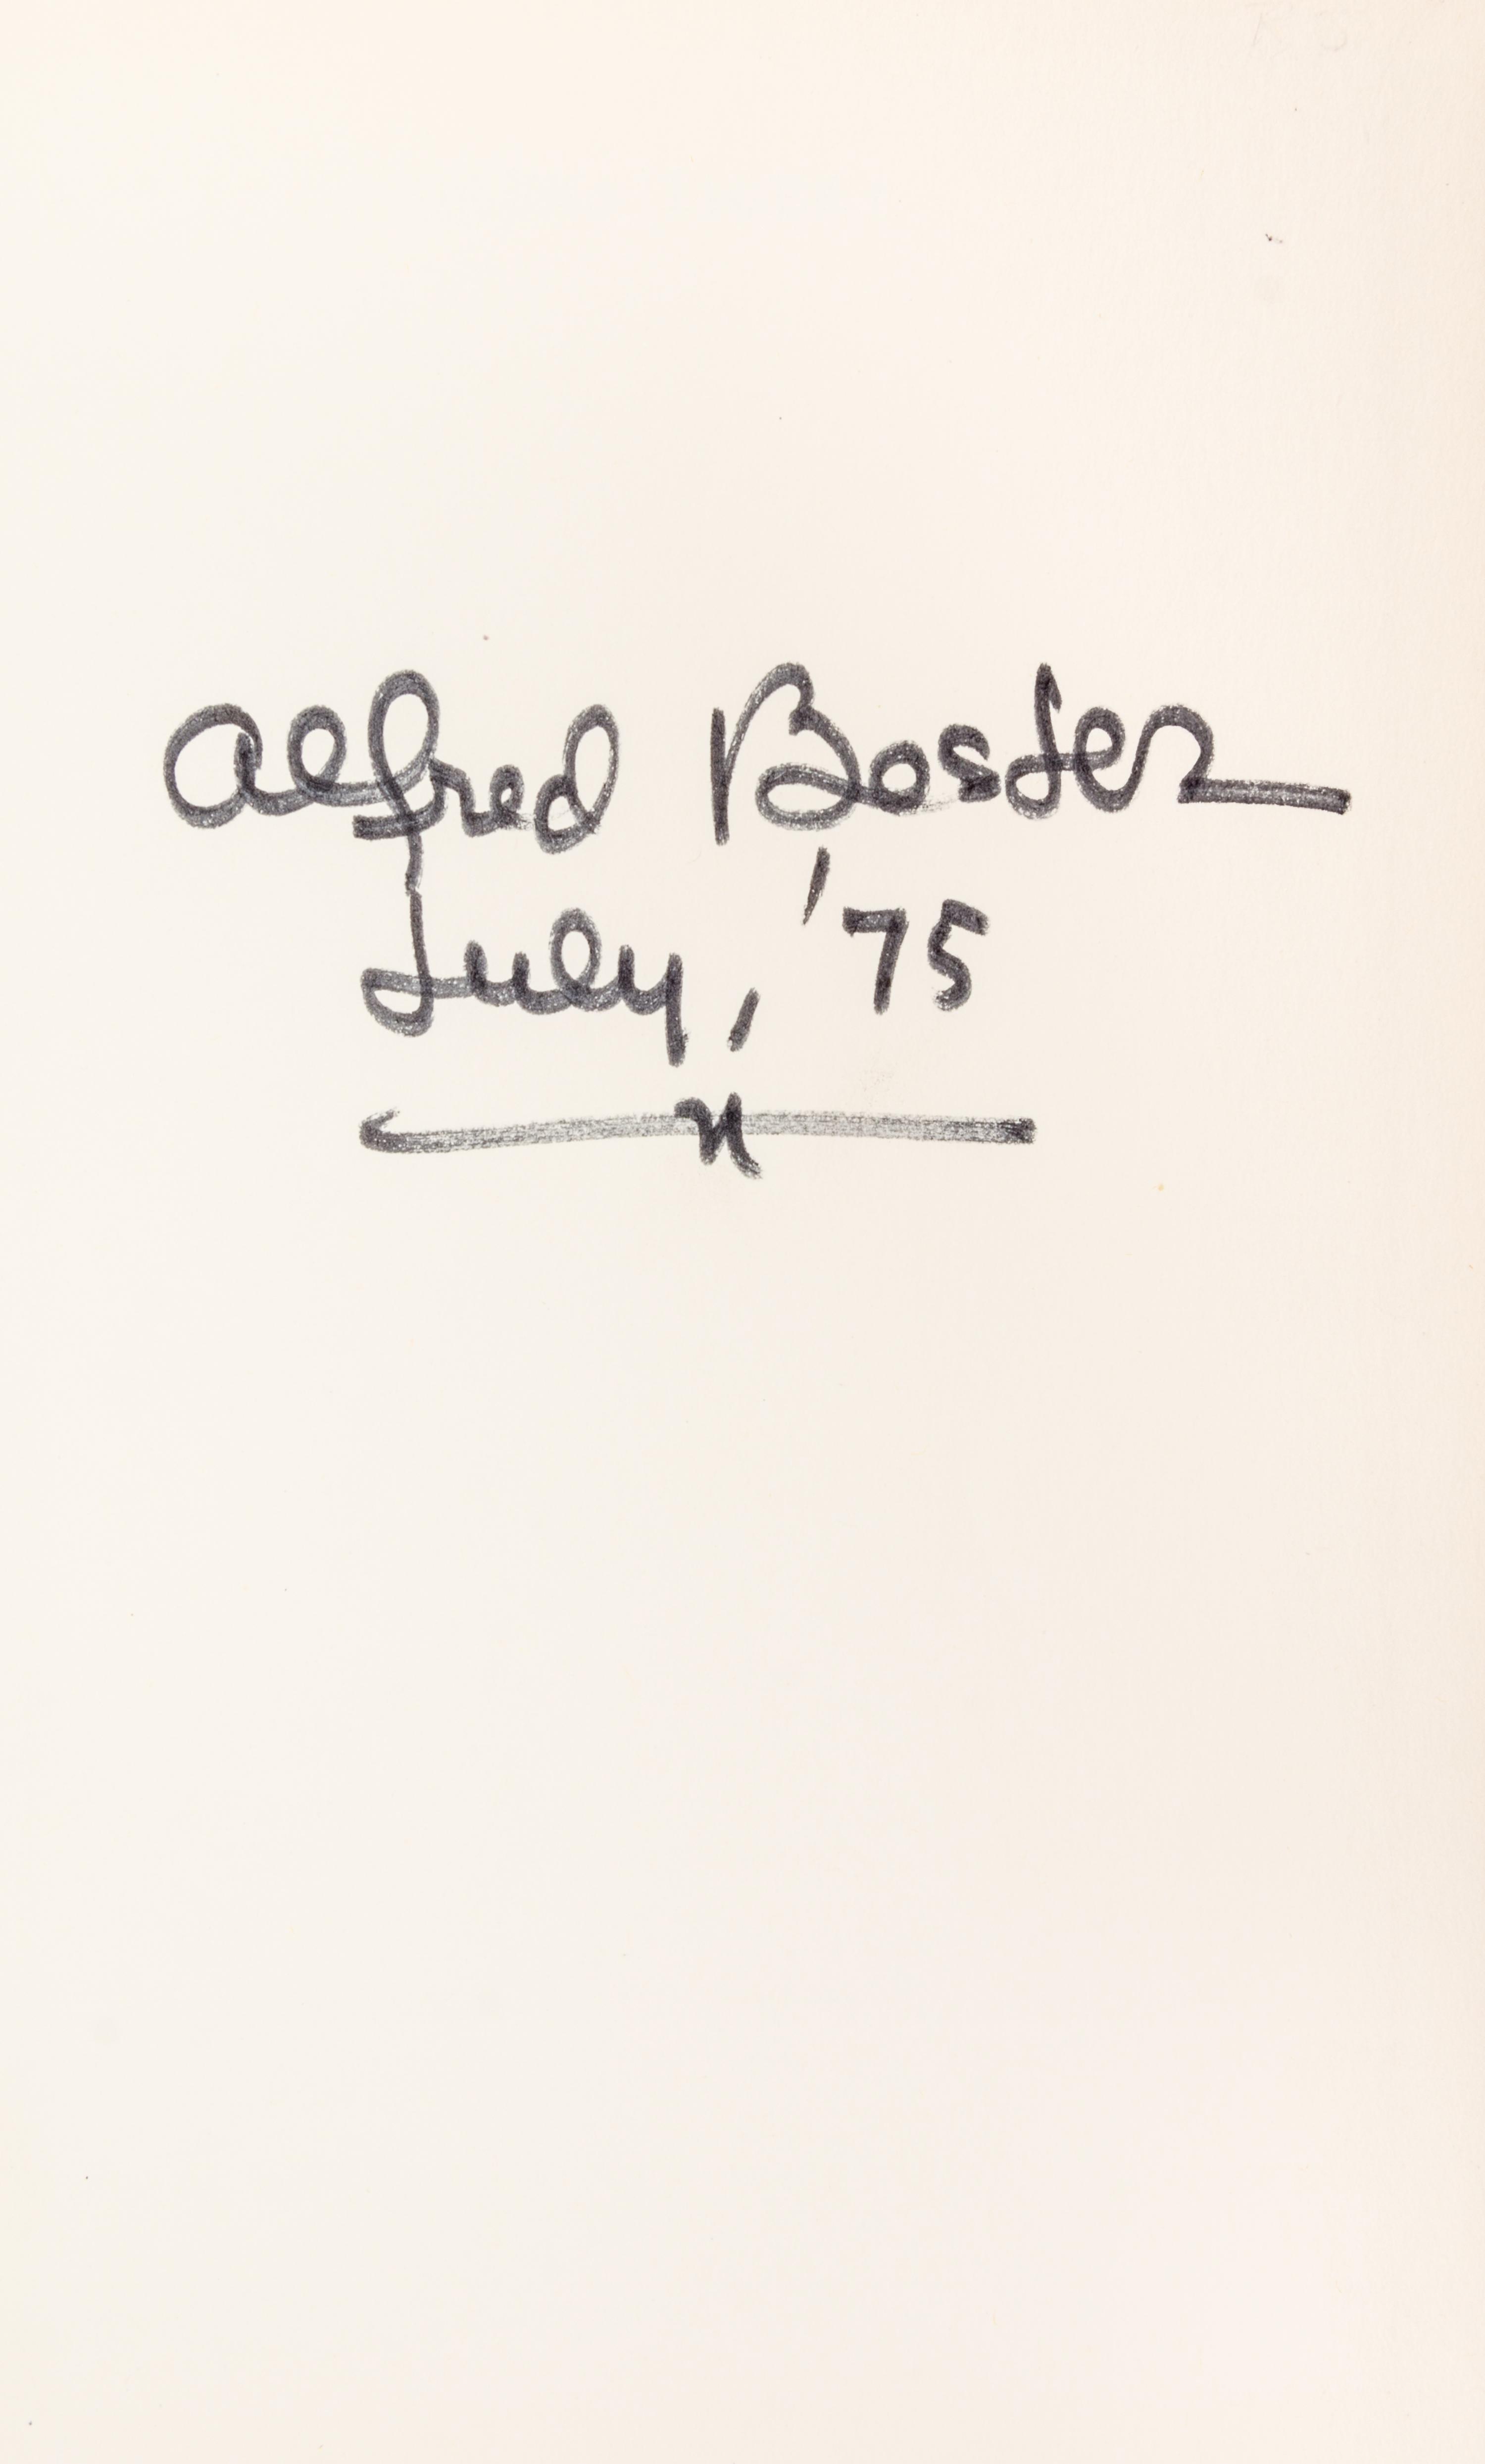 Alfred Bester
July, '75
x